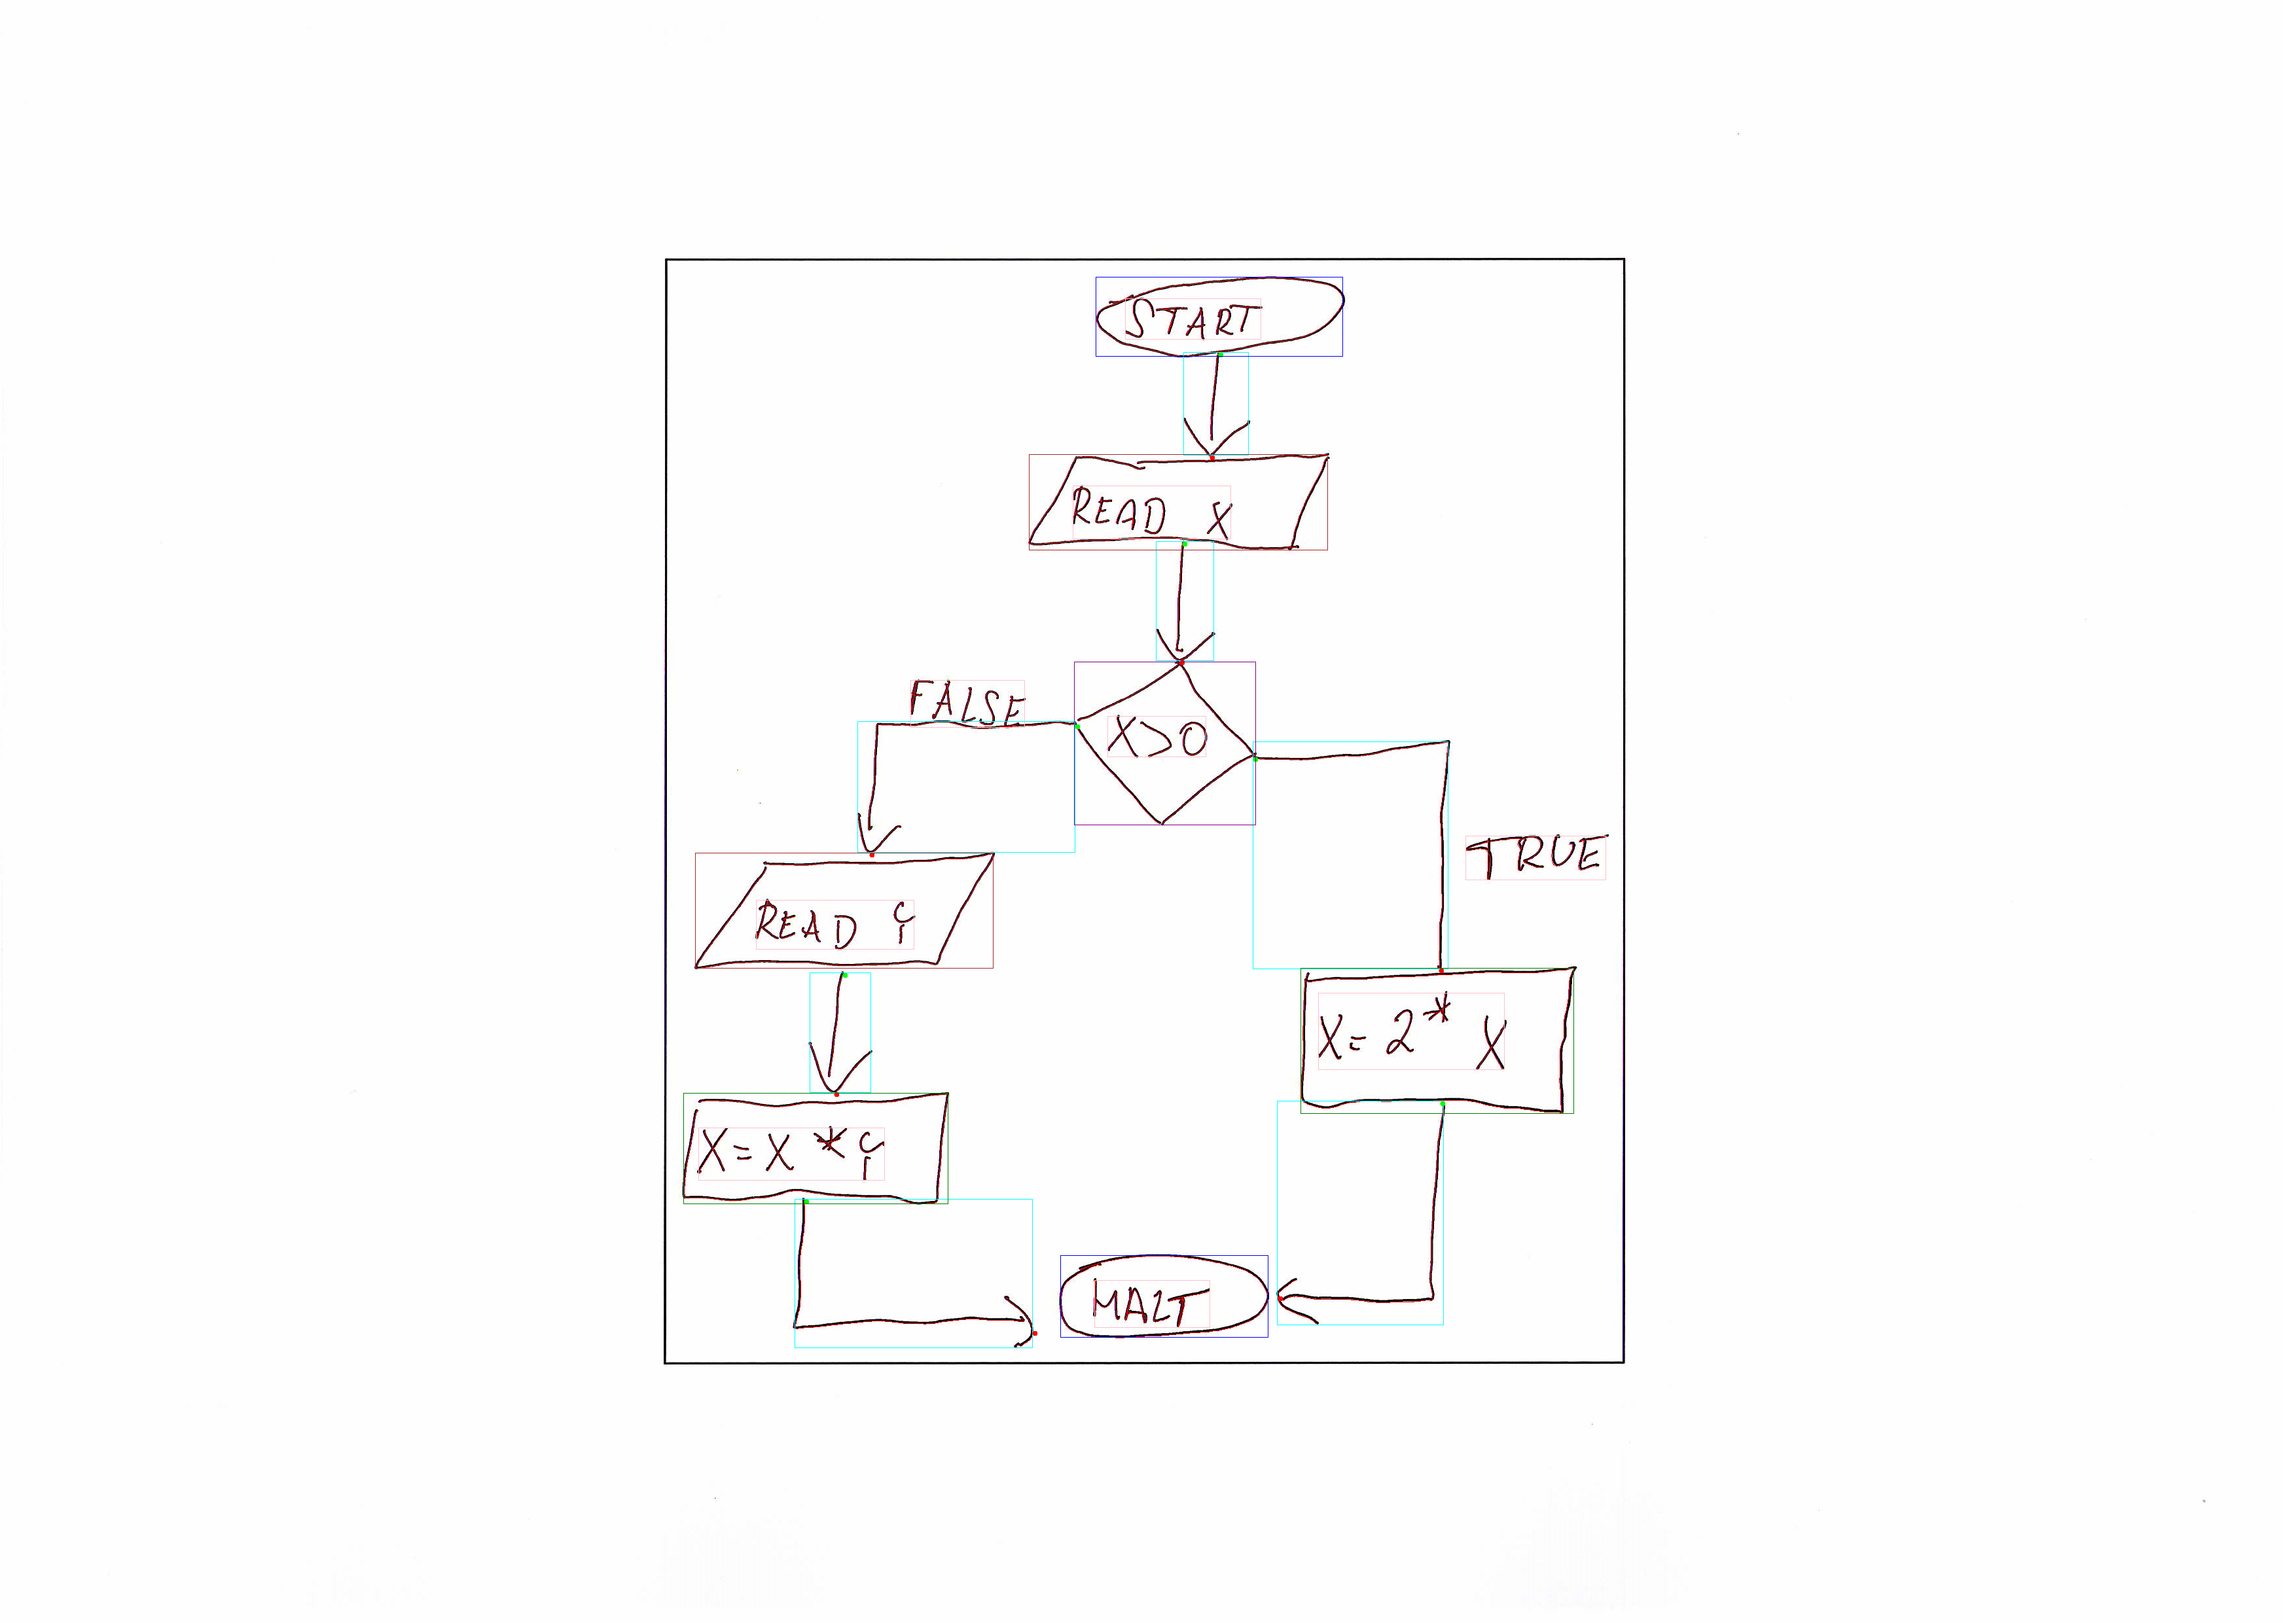 START
READ X
X>0
FALSE
TRUE
READ i
X= 2* X
X=X * i
HALT